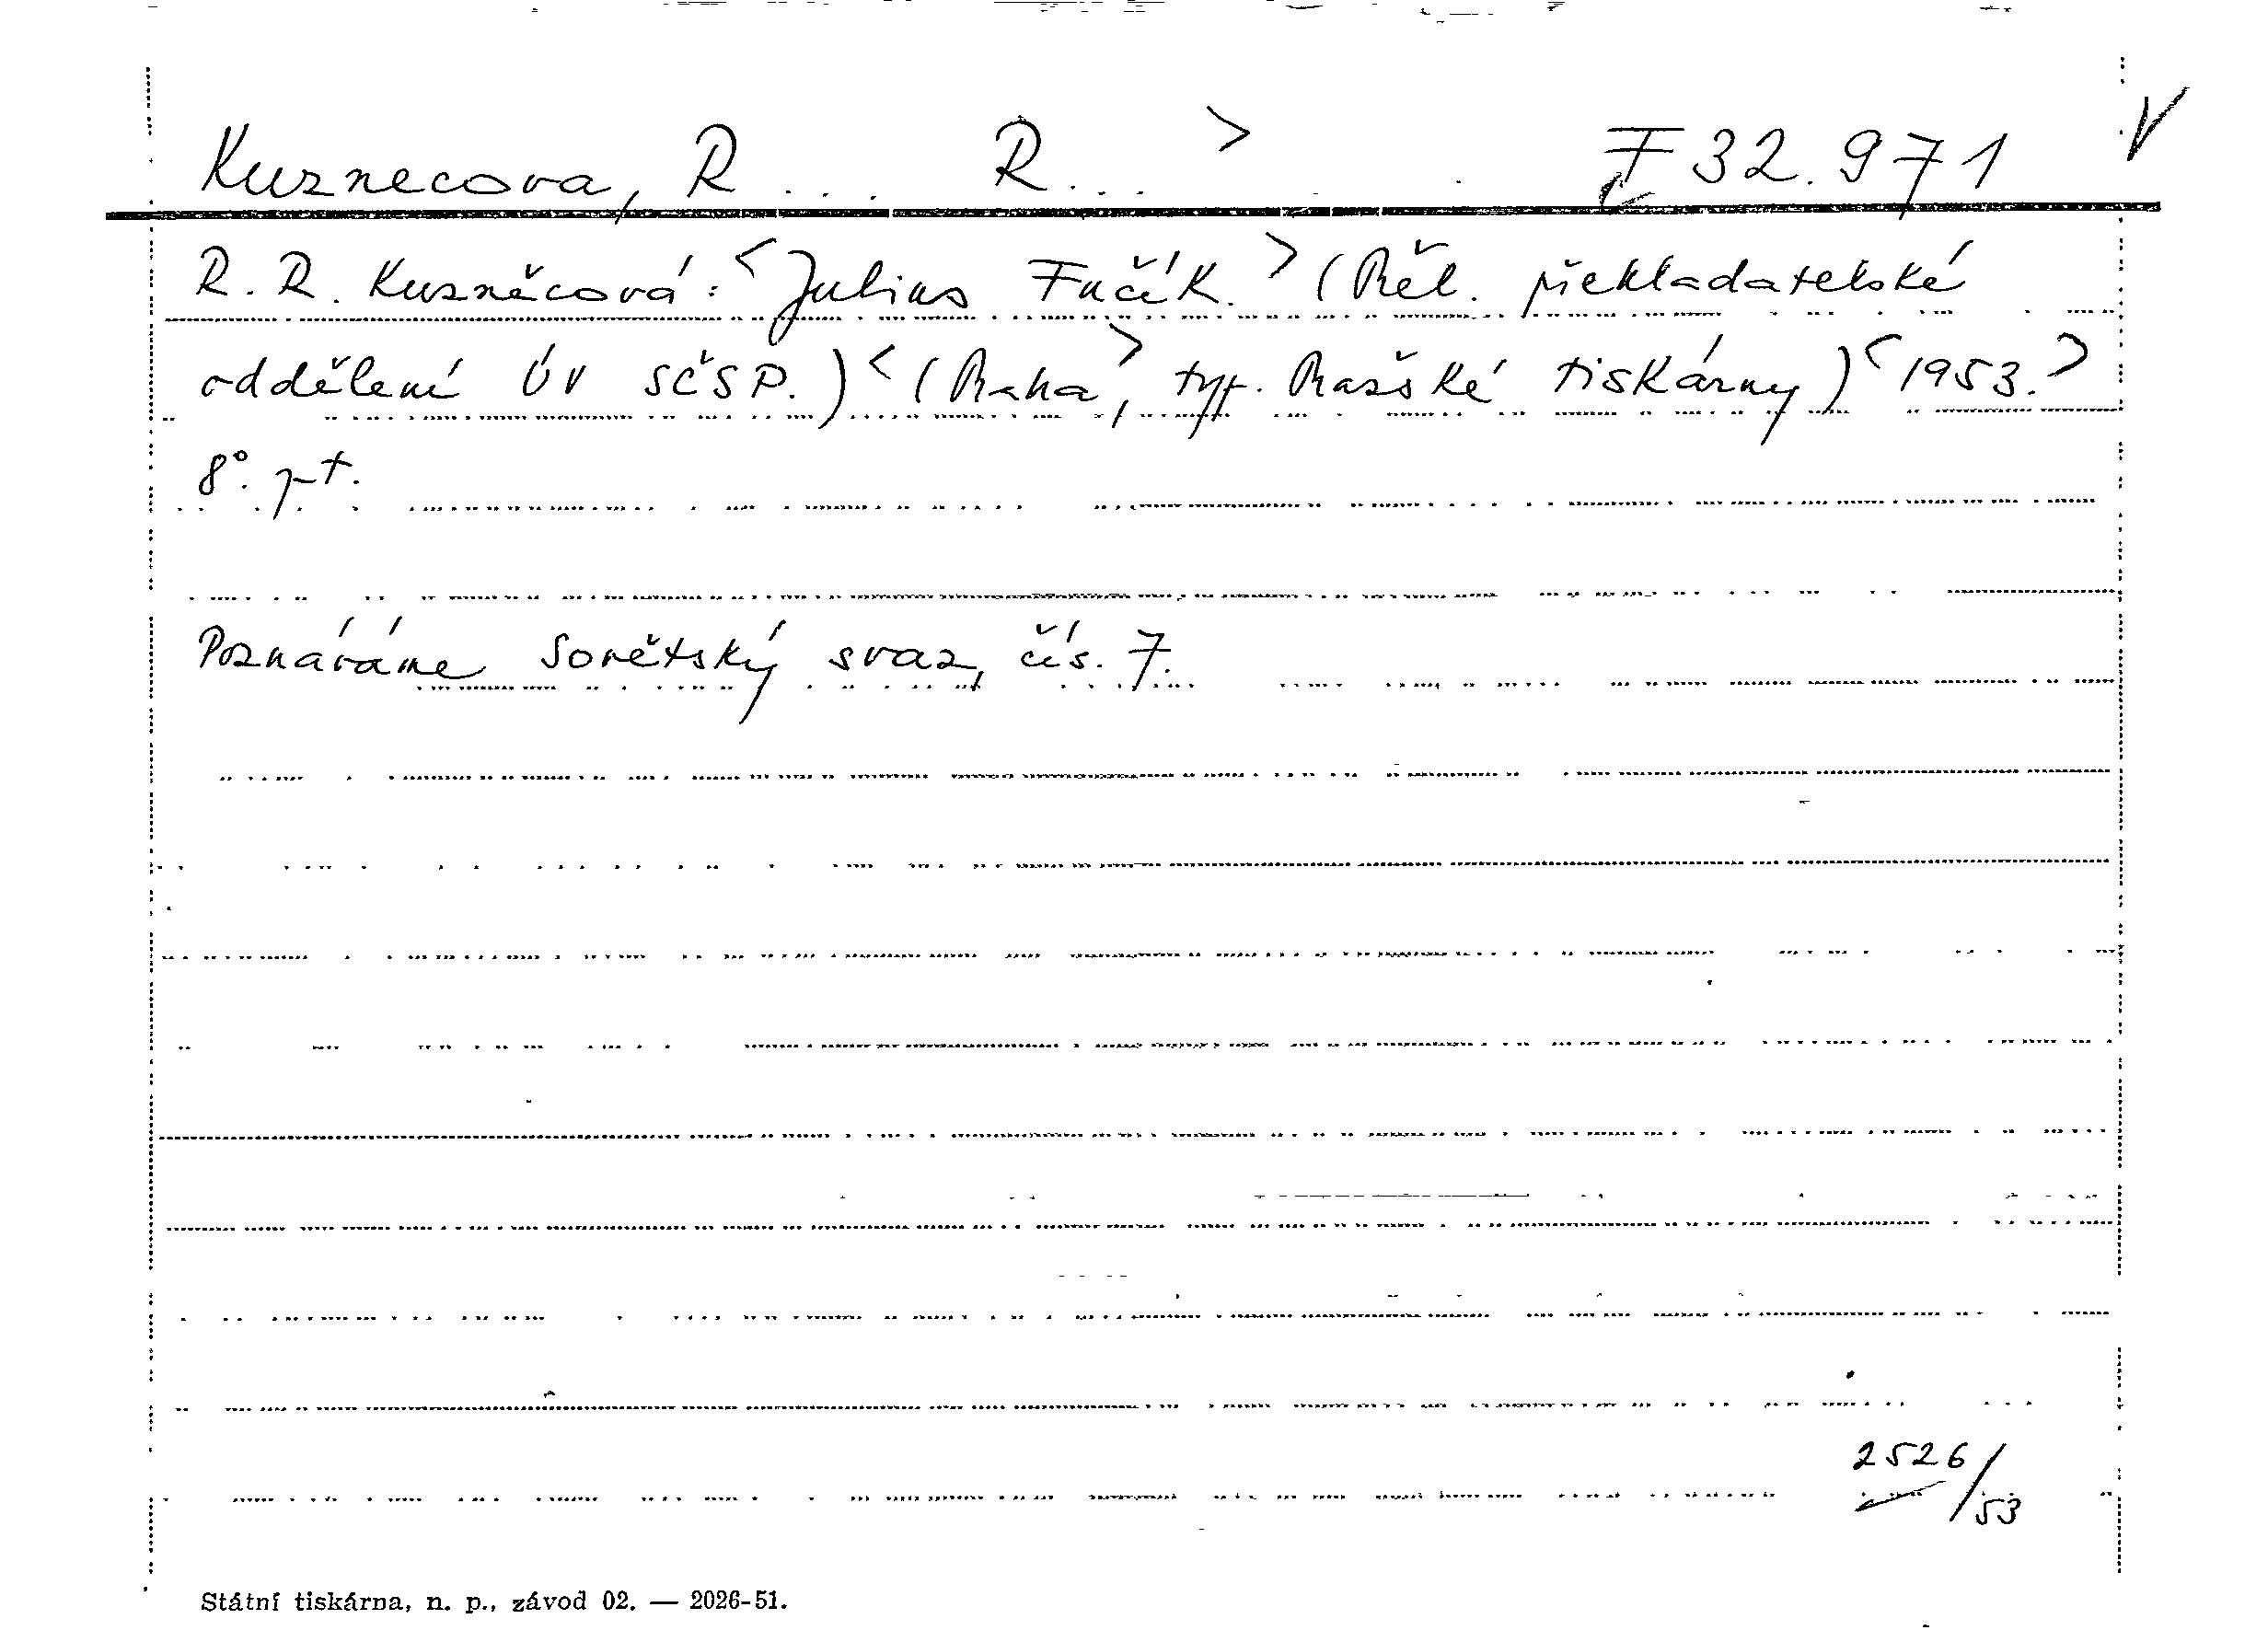 Kuznecova, R... R... > F 32.971 V
R. R. Kuzněcová: <Julius Fučík.> (Přel. překladatelské
oddělení ÚV SČSP.) <(Praha>, typ. Pražské tiskárny) <1953.>
8°. pt.
Poznáváme Sovětský svaz, čís. 7.
2526/53
Státní tiskárna, n. p., závod 02. — 2026-51.